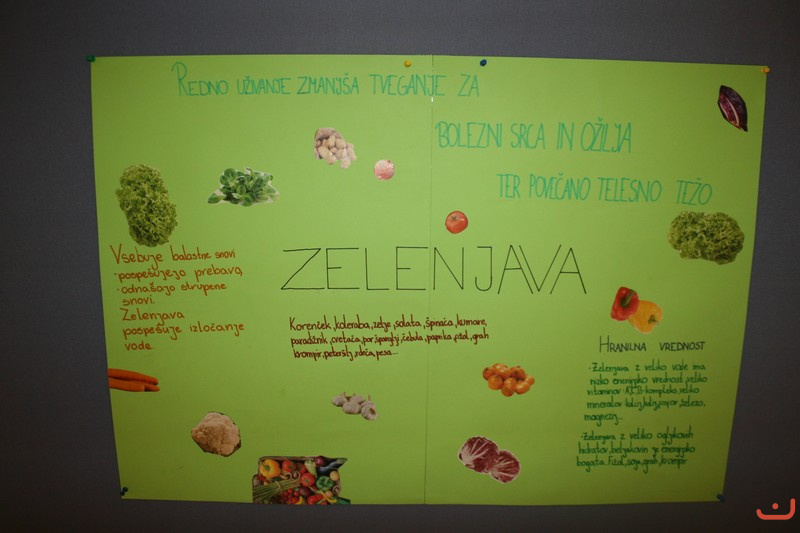 REDNO UŽIVANJE ZMANJŠA TVEGANJE ZA
BOLEZNI SRCA IN OŽILJA
TER POVEČANO TELESNO TEŽO
Vsebuje balastne snovi
·pospešujejo prebavo,
·odnašajo strupene
snovi.
Zelenjava
pospešuje izločanje
vode.
ZELENJAVA
Korenček, koleraba, zelje, solata, špinača, kumare,
paradižnik, cvetača, por, šparglji, čebula, paprika, fižol, grah
krompir, peteršilj, rdeča, pesa...
HRANILNA VREDNOST
·Zelenjava z veliko vode ima
nizko energijsko vrednost, veliko
vitaminov A,C,B-kompleks, veliko
mineralov-kalcij, kalij, fosfor, železo,
magnezij...
·Zelenjava z veliko ogljikovih
hidratov, beljakovin je energijsko
bogata. Fižol, soja, grah, krompir